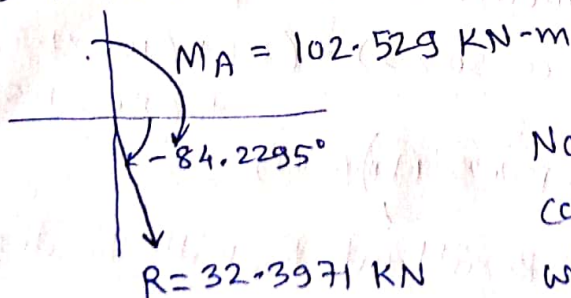 M_A = 102.529 KN-m
-84.2295°
R = 32.3971 KN